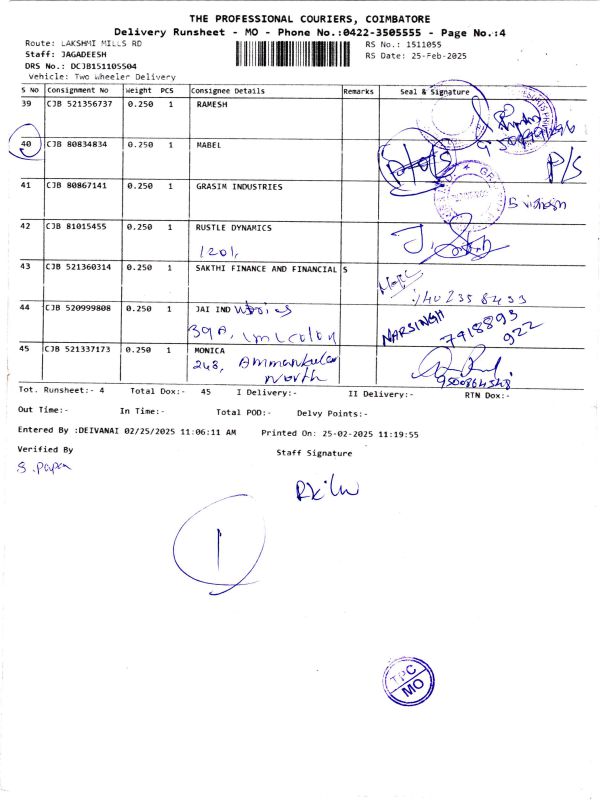 THE PROFESSIONAL COURIERS, COIMBATORE
Delivery Runsheet - MO - Phone No.:0422-3505555 - Page No.:4
Route: LAKSHMI MILLS RD
RS No.: 1511055
Staff: JAGADEESH
RS Date: 25-Feb-2025
DRS No.: DCJB151105504
Vehicle: Two Wheeler Delivery
S No Consignment No Weight PCS Consignee Details Remarks Seal & Signature
39 CJB 521356737 0.250 1 RAMESH
40 CJB 80834834 0.250 1 MABEL
P/S
41 CJB 80867141 0.250 1 GRASIM INDUSTRIES
42 CJB 81015455 0.250 1 RUSTLE DYNAMICS
1201,
43 CJB 521360314 0.250 1 SAKTHI FINANCE AND FINANCIAL S
44 CJB 520999808 0.250 1 JAI IND
39A,
NARSINGH
7418893
922
45 CJB 521337173 0.250 1 MONICA
248, Ammankulam
North
Tot. Runsheet:- 4 Total Dox:- 45 I Delivery:- II Delivery:- RTN Dox:-
Out Time:- In Time:- Total POD:- Delvy Points:-
Entered By :DEIVANAI 02/25/2025 11:06:11 AM Printed On: 25-02-2025 11:19:55
Verified By Staff Signature
1
TPC
MO